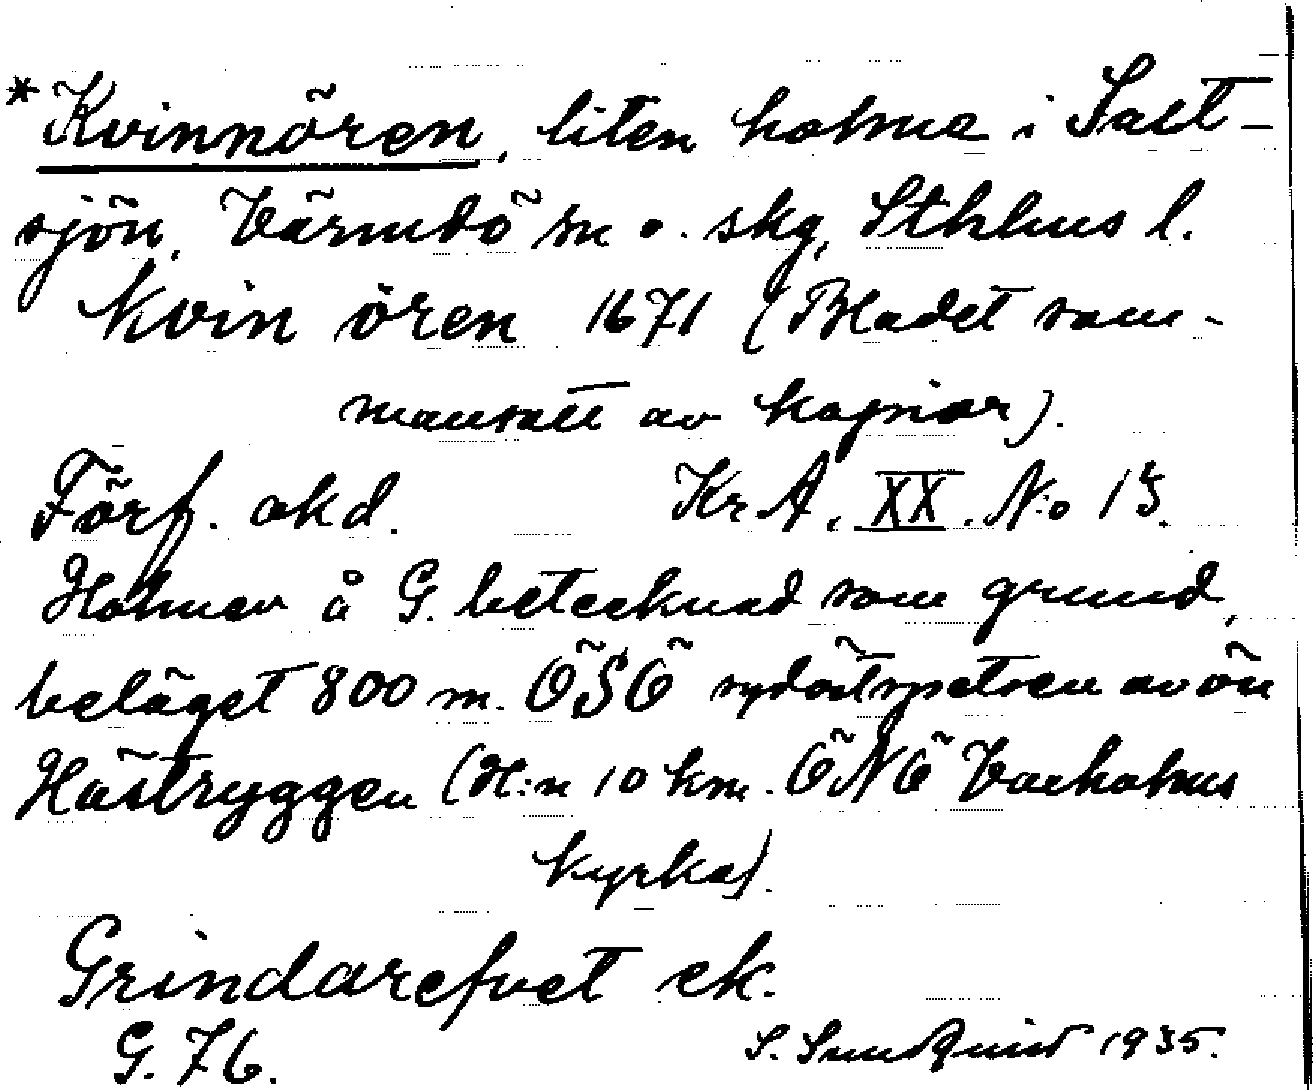 *Kvinnören, liten holme i Salt-
sjön, Värmdö sn o. skg, Sthlms l.
Kvin ören 1671 (Bladet sam-
mansatt av kopior).
Förf. okd. KrA, XX. No 13.
Holmen å G. betecknad som grund,
beläget 800 m. ÖSÖ sydöstspetsen av ön
Hästryggen (H:n 10 km. ÖNÖ Vaxholms
kyrka).
Grindarefvet ek.
G. 76. S. Sundquist 1935.